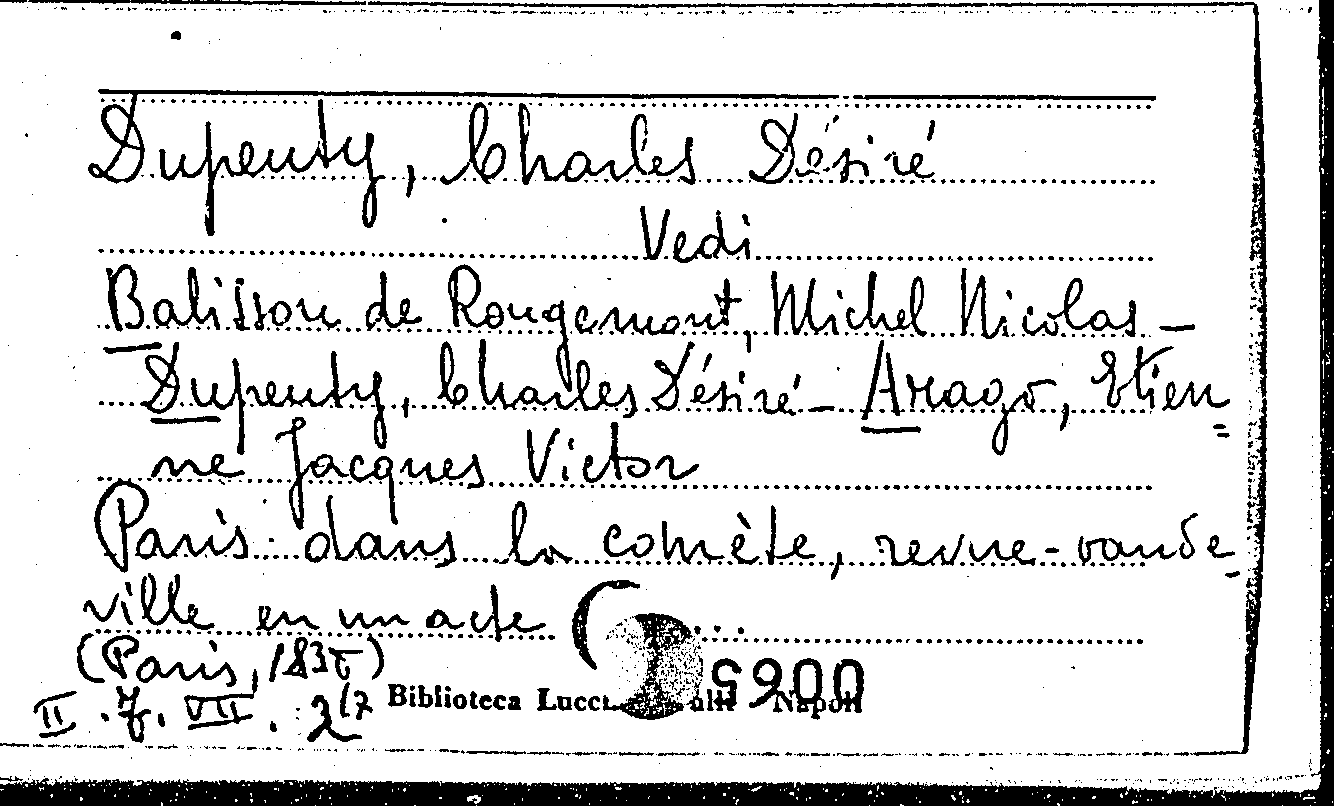 Dupeuty, Charles Désiré
Vedi
Balisson de Rougemont, Michel Nicolas -
Dupeuty, Charles Désiré - Arago, Etien=
ne Jacques Victor
Paris dans la comète, revue-vaude-
ville en un acte ...
(Paris, 183
II . 7. VII . 2
Biblioteca Napoli
0065